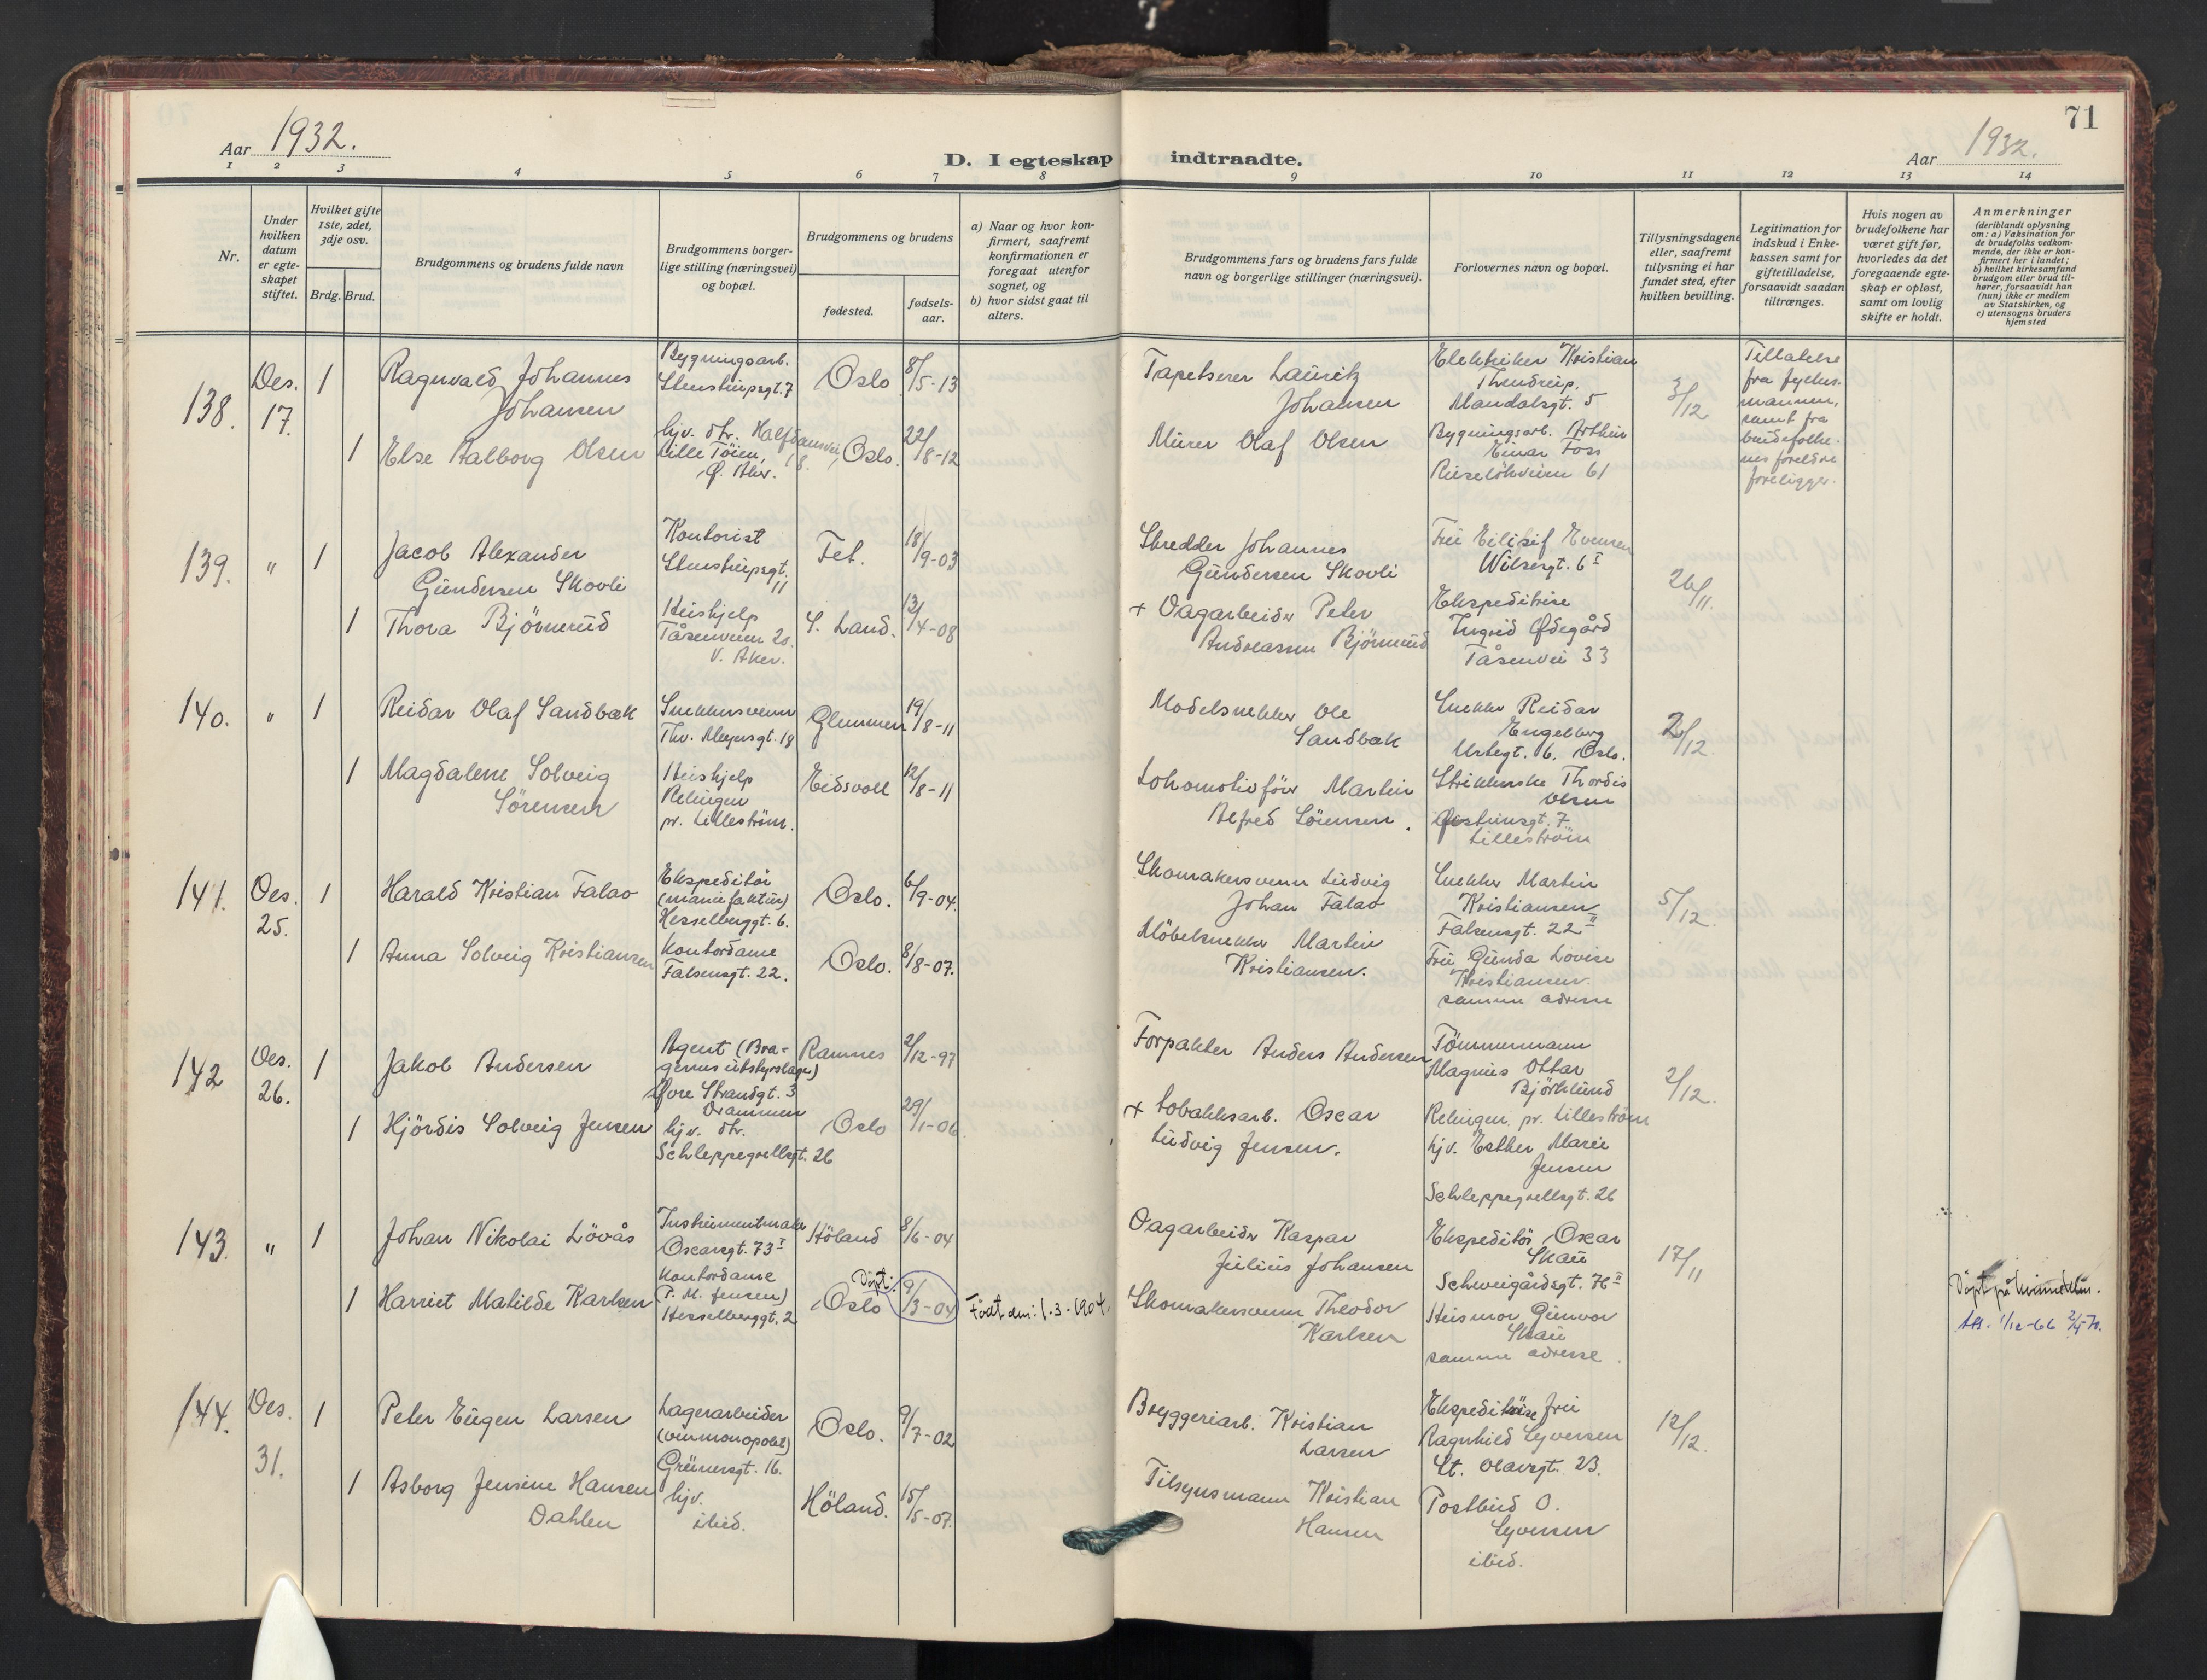 71
Aar 1932.
D. I egteskap indtraadte.
Aar 1932.
1 2 3 4 5 6 7 8 9 10 11 12 13 14
Nr.
Under hvilken datum er egteskapet stiftet.
Hvilket gifte 1ste, 2det, 3dje osv.
Brdg. Brud.
Brudgommens og brudens fulde navn
Brudgommens borgerlige stilling (næringsvei) og bopæl.
Brudgommens og brudens
fødested.
fødselsaar.
a) Naar og hvor konfirmert, saafremt konfirmationen er foregaat utenfor sognet, og
b) hvor sidst gaat til alters.
Brudgommens fars og brudens fars fulde navn og borgerlige stillinger (næringsvei).
Forlovernes navn og bopæl.
Tillysningsdagene eller, saafremt tillysning ei har fundet sted, efter hvilken bevilling.
Legitimation for indskud i Enkekassen samt for giftetilladelse, forsaavidt saadan tiltrænges.
Hvis nogen av brudefolkene har været gift før, hvorledes da det foregaaende egteskap er opløst, samt om lovlig skifte er holdt.
Anmerkninger
(deriblandt oplysning om: a) Vaksination for de brudefolks vedkommende, der ikke er konfirmert her i landet;
b) hvilket kirkesamfund brudgom eller brud tilhører, forsaavidt han (hun) ikke er medlem av Statskirken, og
c) utensogns bruders hjemsted
138. Des. 17. 1
Ragnvald Johannes
Johansen
Bygningsarb.
Stenstrupsgt. 7
Oslo 8/5-13
Tapetserer Lauritz
Johansen
Elektriker Kristian
Thendrup.
Mandalsgt. 5
3/12
Tillatelse
fra fylkes-
mannen,
samt fra
brudefolke-
nes foreldre
foreligger.
1 Else Aalborg Olsen
hjv. dtr. Halfdansvei 18.
Lille Töien,
Ø. Aker.
Oslo. 22/8-12
Murer Olaf Olsen
Bygningsarb. Arthur
Einar Foss
Rüselökveien 61
139. " 1
Jacob Alexander
Gundersen Skovli
Kontorist
Stenstrupsgt.
11
Fet. 18/9-03
Skredder Johannes
Gundersen Skovli
Fru Eilisif Evensen
Wilsesgt. 6 I
26/11.
1 Thora Björnerud
Hushjelp
Tåsenveien 20.
V. Aker.
S. Land. 13/4-08
+ Dagarbeider Peter
Andreassen Björnerud
Ekspeditrise
Ingrid Ødegård
Tåsenvei 33
140. " 1
Reidar Olaf Sandbæk
Snekkersvenn
Thv. Meyersgt. 18
Glemmen 19/8-11
Modelsnekker Ole
Sandbæk
Snekker Reidar
Engelberg
Urtegt. 6. Oslo.
2/12.
1 Magdalene Solveig
Sörensen
Hushjelp
Relingen
pr. Lilleström.
Eidsvoll 12/8-11
Lokomotivförer Martin
Alfred Sörensen.
Strikkerske Thordis
Olsen
gt. 7
Lilleström
141. Des. 25. 1
Harald Kristian Falao
Ekspeditör
(manufaktur)
Hesselberggt. 6.
Oslo. 6/9-04.
Skomakersvenn Ludvig
Johan Falao
Snekker Martin
Kristiansen
Falsensgt. 22 II
5/12.
1 Anna Solveig Kristiansen
Kontordame
Falsensgt. 22.
Oslo. 8/8-07.
Möbelsnekker Martin
Kristiansen.
Fru Gunda Lovise
Kristiansen.
samme adresse
142 Des. 26. 1
Jakob Andersen
Agent (Bra-
gernes utstyrslager)
Övre Strandgt. 3
Drammen
Ramnes 2/12-97
Forpakter Anders Andersen
Tömmermann
Magnus Ottar
Björklund
Relingen. pr. Lilleström
2/12.
1 Hjördis Solveig Jensen
hjv. dtr.
Schleppegrellsgt. 26
Oslo 29/1-06.
+ Tobakksarb. Oscar
Ludvig Jensen.
hjv. Esther Marie
Jensen
Schleppegrellsgt. 26
143. " 1
Johan Nikolai Lövås
Instrumentmaker
Oscarsgt. 73 I
Höland 8/6-04
Dagarbeider Kaspar
Julius Johansen
Ekspeditör Oscar
Skau
Schweigårdsgt. 76 II
17/11
1 Harriet Matilde Karlsen
Kontordame
(P. M. Jensen)
Hesselberggt. 2
Oslo Döpt: 9/3-04
Född den: 1.3.1904.
Skomakersvenn Theodor
Karlsen
Husmor Gunvor
Skau
samme adresse.
Döpt på kvinneklin.
Att. 1/12-66
144. Des. 31. 1
Peter Eugen Larsen
Lagerarbeider
(vinmonopolet)
Grünersgt. 16.
Oslo. 9/7-02
Bryggeriarb. Kristian
Larsen
Ekspeditrise fru
Ragnhild Syversen
St. Olavsgt. 23.
12/12.
1 Asborg Jensine Hansen
Dahlen
hjv.
ibid.
Höland. 15/5-07.
Tilsynsmann Kristian
Hansen
Postbud O.
Syversen
ibid.